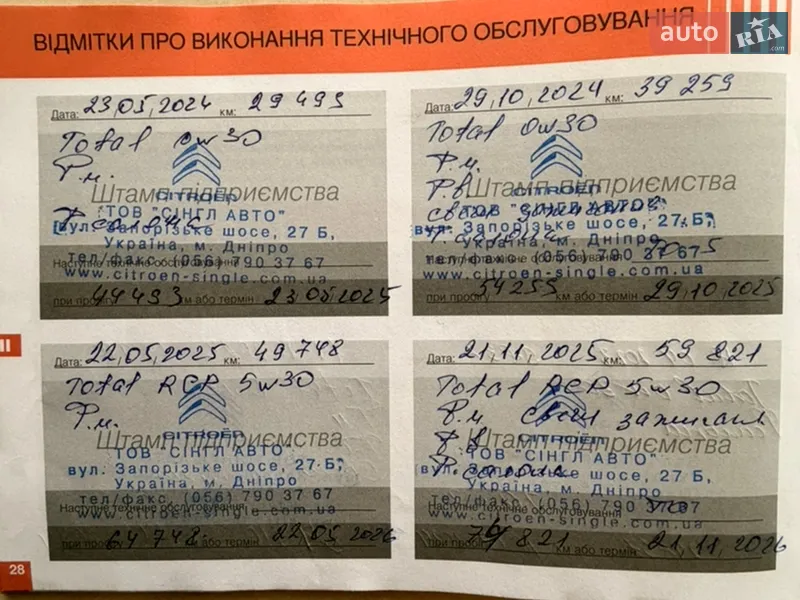 ВІДМІТКИ ПРО ВИКОНАННЯ ТЕХНІЧНОГО ОБСЛУГОВУВАННЯ
auto RIA .com
Дата: 23,05,2024 км: 29 493
Total 0w30
Р.м.
Штамп підприємства
CITROËN
Р. салона
ТОВ "СІНГЛ АВТО"
вул. Запорізьке шосе, 27 Б,
Україна, м. Дніпро
тел/факс (056) 790 37 67
Наступне технічне обслуговування
www.citroen-single.com.ua
при пробігу 44493 км або термін 23.05.2025
Дата: 29,10,2024 км: 39 259
Total 0w30
Р.м.
Р.в.
Штамп підприємства
CITROËN
свечи
ТОВ "СІНГЛ АВТО"
вул. Запорізьке шосе, 27 Б,
Україна, м. Дніпро
тел/факс (056) 790 37 67
Наступне технічне обслуговування
www.citroen-single.com.ua
при пробігу 54259 км або термін 29,10,2025
Дата: 22,05,2025 км: 49 748
Total RCP 5w30
Р.м.
Штамп підприємства
CITROËN
ТОВ "СІНГЛ АВТО"
вул. Запорізьке шосе, 27 Б,
Україна, м. Дніпро
тел/факс (056) 790 37 67
Наступне технічне обслуговування
www.citroen-single.com.ua
при пробігу 64 748 км або термін 22.05 2026
Дата: 21,11,2025 км: 59 821
Total RCP 5w30
Р.м свечи зажигания
Р.в
Штамп підприємства
CITROËN
ТОВ "СІНГЛ АВТО"
Р. салона
вул. Запорізьке шосе, 27 Б,
Україна, м. Дніпро
тел/факс (056) 790 37 67
Наступне технічне обслуговування
www.citroen-single.com.ua
при пробігу 74 821 км або термін 21,11,2026
28